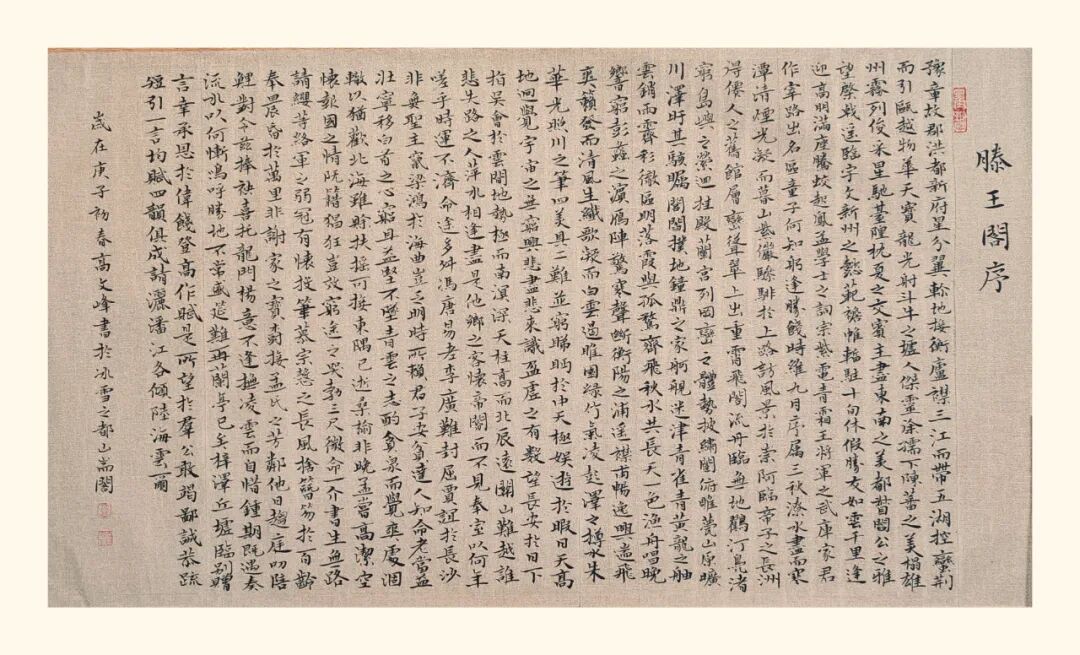 滕王閣序
豫章故郡洪都新府星分翼軫地接衡廬襟三江而帶五湖控蠻荊
而引甌越物華天寶龍光射斗牛之墟人傑靈徐孺下陳蕃之美榻雄
州霧列俊采星馳臺隍枕夏之交賓主盡東南之美都督閻公之雅
望棨戟遙臨宇文新州之懿範襜帷暫駐十旬休假勝友如雲千里逢
迎高朋滿座騰蛟起鳳孟學士之詞宗紫電青霜王將軍之武庫家君
作宰路出名區童子何知躬逢勝餞時維九月序屬三秋潦水盡而寒
潭清煙光凝而暮山紫儼驂騑於上路訪風景於崇阿臨帝子之長洲
得僊人之舊館層巒聳翠上出重霄飛閣流丹臨無地鶴汀鳧渚
窮島嶼之縈迴桂殿蘭宮列岡巒之體勢披繡闥俯雕甍山原曠
川澤盱其駭矚閭閻撲地鐘鼎之家舸艦迷津青雀青黃龍之舳
雲銷雨霽彩徹區明落霞與孤鶩齊飛秋水共長天一色漁舟唱晚
響窮彭蠡之濱雁陣驚寒聲斷衡陽之浦遙襟甫暢逸興遄飛
爽籟發而清風生纖歌凝而白雲遏睢園綠竹氣凌彭澤之樽水朱
華光照川之筆四美具二難並窮睇眄於中天極娛遊於暇日天高
地迴覺宇宙之無窮興悲盡悲來識盈虛之有數望長安於日下
指吳會於雲間地勢極而南溟深天柱高而北辰遠關山難越誰
悲失路之人萍水相逢盡是他鄉之客懷帝閽而不見奉室以何年
嗟乎時運不濟命途多舛馮唐易老李廣難封屈賈誼於長沙
非無聖主竄梁鴻於海曲豈乏明時所賴君子安貧達人知命老當益
壯寧移白首之心窮且益堅不墜青雲之志酌貪泉而覺爽處涸
轍以猶歡北海雖賒扶搖可接東隅已逝桑榆非晚孟嘗高潔空
懷報國之情阮籍猖狂豈效窮途之哭勃三尺微命一介書生無路
請纓等終軍之弱冠有懷投筆慕宗愨之長風捨簪笏於百齡
奉晨昏於萬里非謝家之寶樹接孟氏之芳鄰他日趨庭叨陪
鯉對今茲捧袂喜托龍門楊意不逢撫凌雲而自惜鍾期既遇奏
流水以何慚嗚呼勝地不常盛筵難再蘭亭已矣梓澤丘墟臨別贈
言幸承恩於偉餞登高作賦是所望於群公敢竭鄙誠恭疏
短引一言均賦四韻俱成請灑潘江各傾陸海雲爾
歲在庚子初春高文峰書於冰雪之都山嵩閣